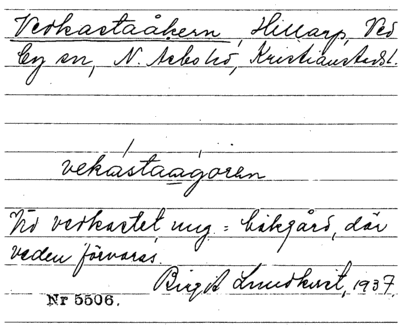 Vedkastaåkern, Hillarp, Ved
by sn, N. Åsbo hd, Kristianstads l.
vekastaagoren
Vid vedkastet, ung = bakgård, där
veden förvaras.
Birgit Lundkvist, 1937.
Nr 5506.